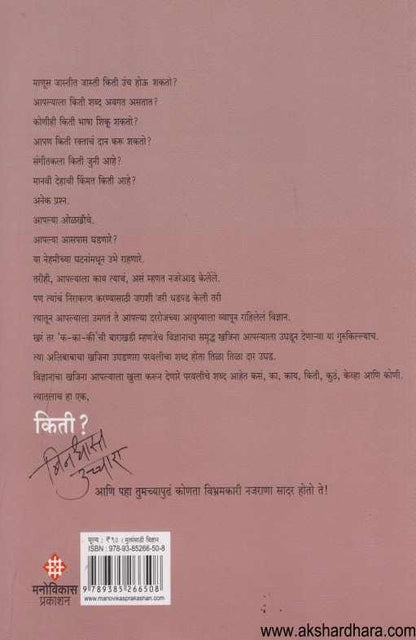 माणूस जास्तीत जास्ती किती उंच होऊ शकतो?
आपल्याला किती शब्द अवगत असतात?
कोणीही किती भाषा शिकू शकतो?
आपण किती रक्ताचं दान करू शकतो?
संगीतकला किती जुनी आहे?
मानवी देहाची किंमत किती आहे?
अनेक प्रश्न.
आपल्या ओळखीचे.
आपल्या आसपास घडणारे?
या नेहमीच्या घटनांमधून उभे राहणारे.
तरीही, आपल्याला काय त्याचं, असं म्हणत नजरेआड केलेले.
पण त्यांचं निराकरण करण्यासाठी जराशी जरी धडपड केली तरी
त्यातून आपल्याला उमगत ते आपल्या दररोजच्या आयुष्याला व्यापून राहिलेलं विज्ञान.
खरं तर 'क-का-की'ची बाराखडी म्हणजेच विज्ञानाचा समृद्ध खजिना आपल्याला उघडून देणाऱ्या या गुरुकिल्ल्याच.
त्या अलिबाबाचा खजिना उघडणारा परवलीचा शब्द होता तिळा तिळा दार उघड.
विज्ञानाचा खजिना आपल्याला खुला करून देणारे परवलीचे शब्द आहेत कसं, का, काय, किती, कुठं, केव्हा आणि कोणी.
त्यातलाच हा एक,
किती ?
बिनधास्त
उच्चारा
आणि पहा तुमच्यापुढं कोणता विभ्रमकारी नजराणा सादर होतो ते!
मूल्य : ₹ ९० : मुलांसाठी विज्ञान
ISBN : 978-93-85266-50-8
9 789385 266508
www.manovikasprakashan.com
मनोविकास
प्रकाशन
www.akshardhara.com